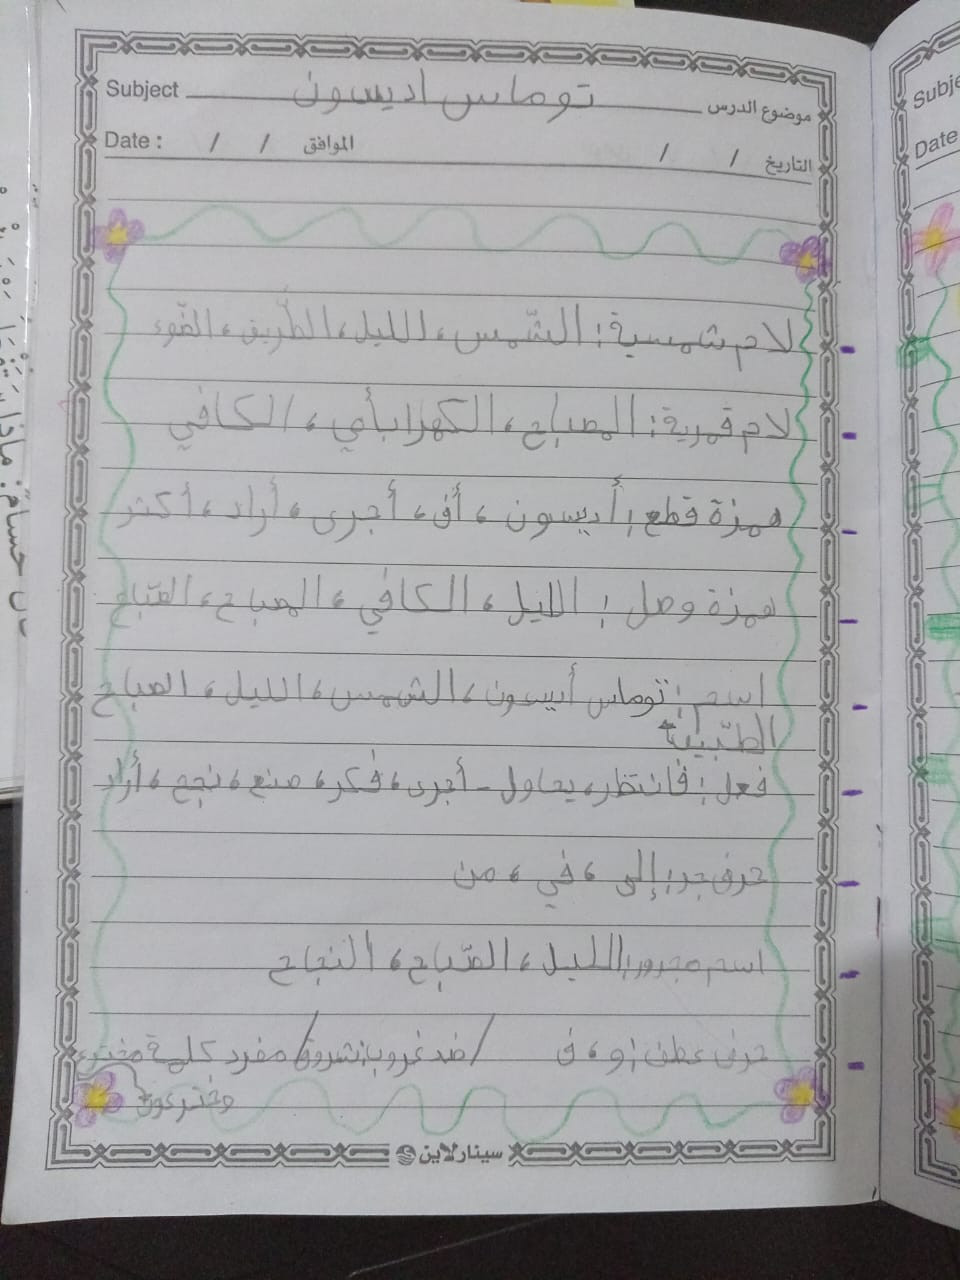 Subject توماس اديسون موضوع الدرس
Date : / / الموافق / / التاريخ
لام شمسية: الشّمس، الليل، الطّريق، الضّوء
لام قمرية: المصباح، الكهرابأي، الكافي
همزة قطع: أديسون، أف، أجرى، أراد، أكثر
همزة وصل: الليل، الكافي، المصباح، الصّباح
اسم: توماس أديسون، الشمس، الليل، الصباح
فعل: فانتظر، يحاول - أجرى، فكر، صنع، نجح، أراد
حرف جر: إلى، في، من
اسم مجرور: الليل، الصّباح، النجاح
حرف عطف: و، ف / ضد غروب: شروق / مفرد كلمة
سينارلاين
Subje
Date
حسام: ماذا